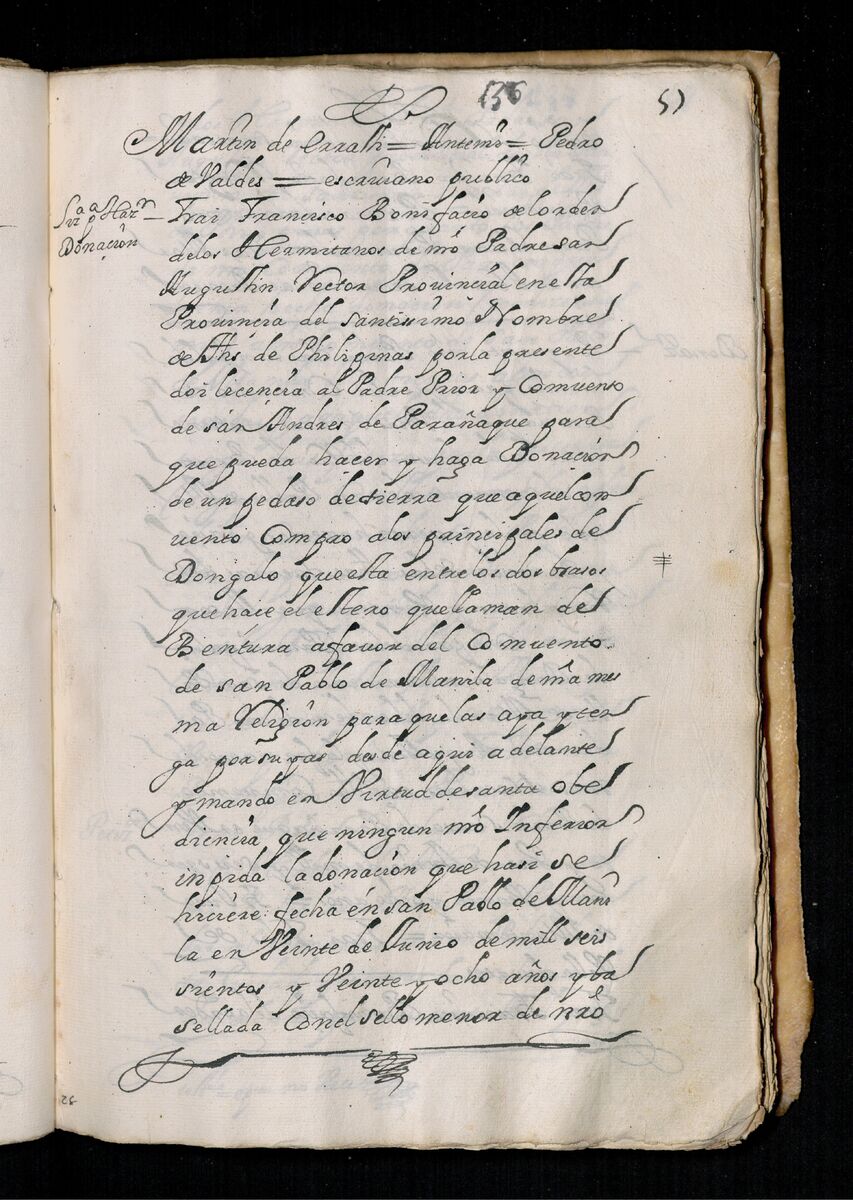 136
51
Martin de erralli = Antemi = Pedro
de Valdes = escruiano publico
Donaçion
Frai Francisco Bonifacio de lorden
delos Hermitanos de nr̃o Padre san
Augustin Rector Provincial en esta
Provincia del santissimo Nombre
de Jhs de Philipinas por la presente
doi licencia al Padre Prior y Comvento
de sán Andres de Parañaque para
que pueda hacer y haga Donacion
de un pedaso de tierra que aquel con
vento Compro a los principales de
Dongalo que esta entre los dos brasos
que hace el estero que llaman de
Bentura a favor del Comvento
de san Pablo de Manila de nr̃a mes
ma Religion para que las aya y ten
ga por suyas desde aqui adelante
y mando en Virtud de santa obe
diencia que ningun nr̃o Inferior
inpida la donacion que hasi se
hiciere: fecha en san Pablo de Mani
la en Veinte de Junio de mill seis
sientos y Veinte y ocho años y ba
sellada Con el sello menor de nrõ